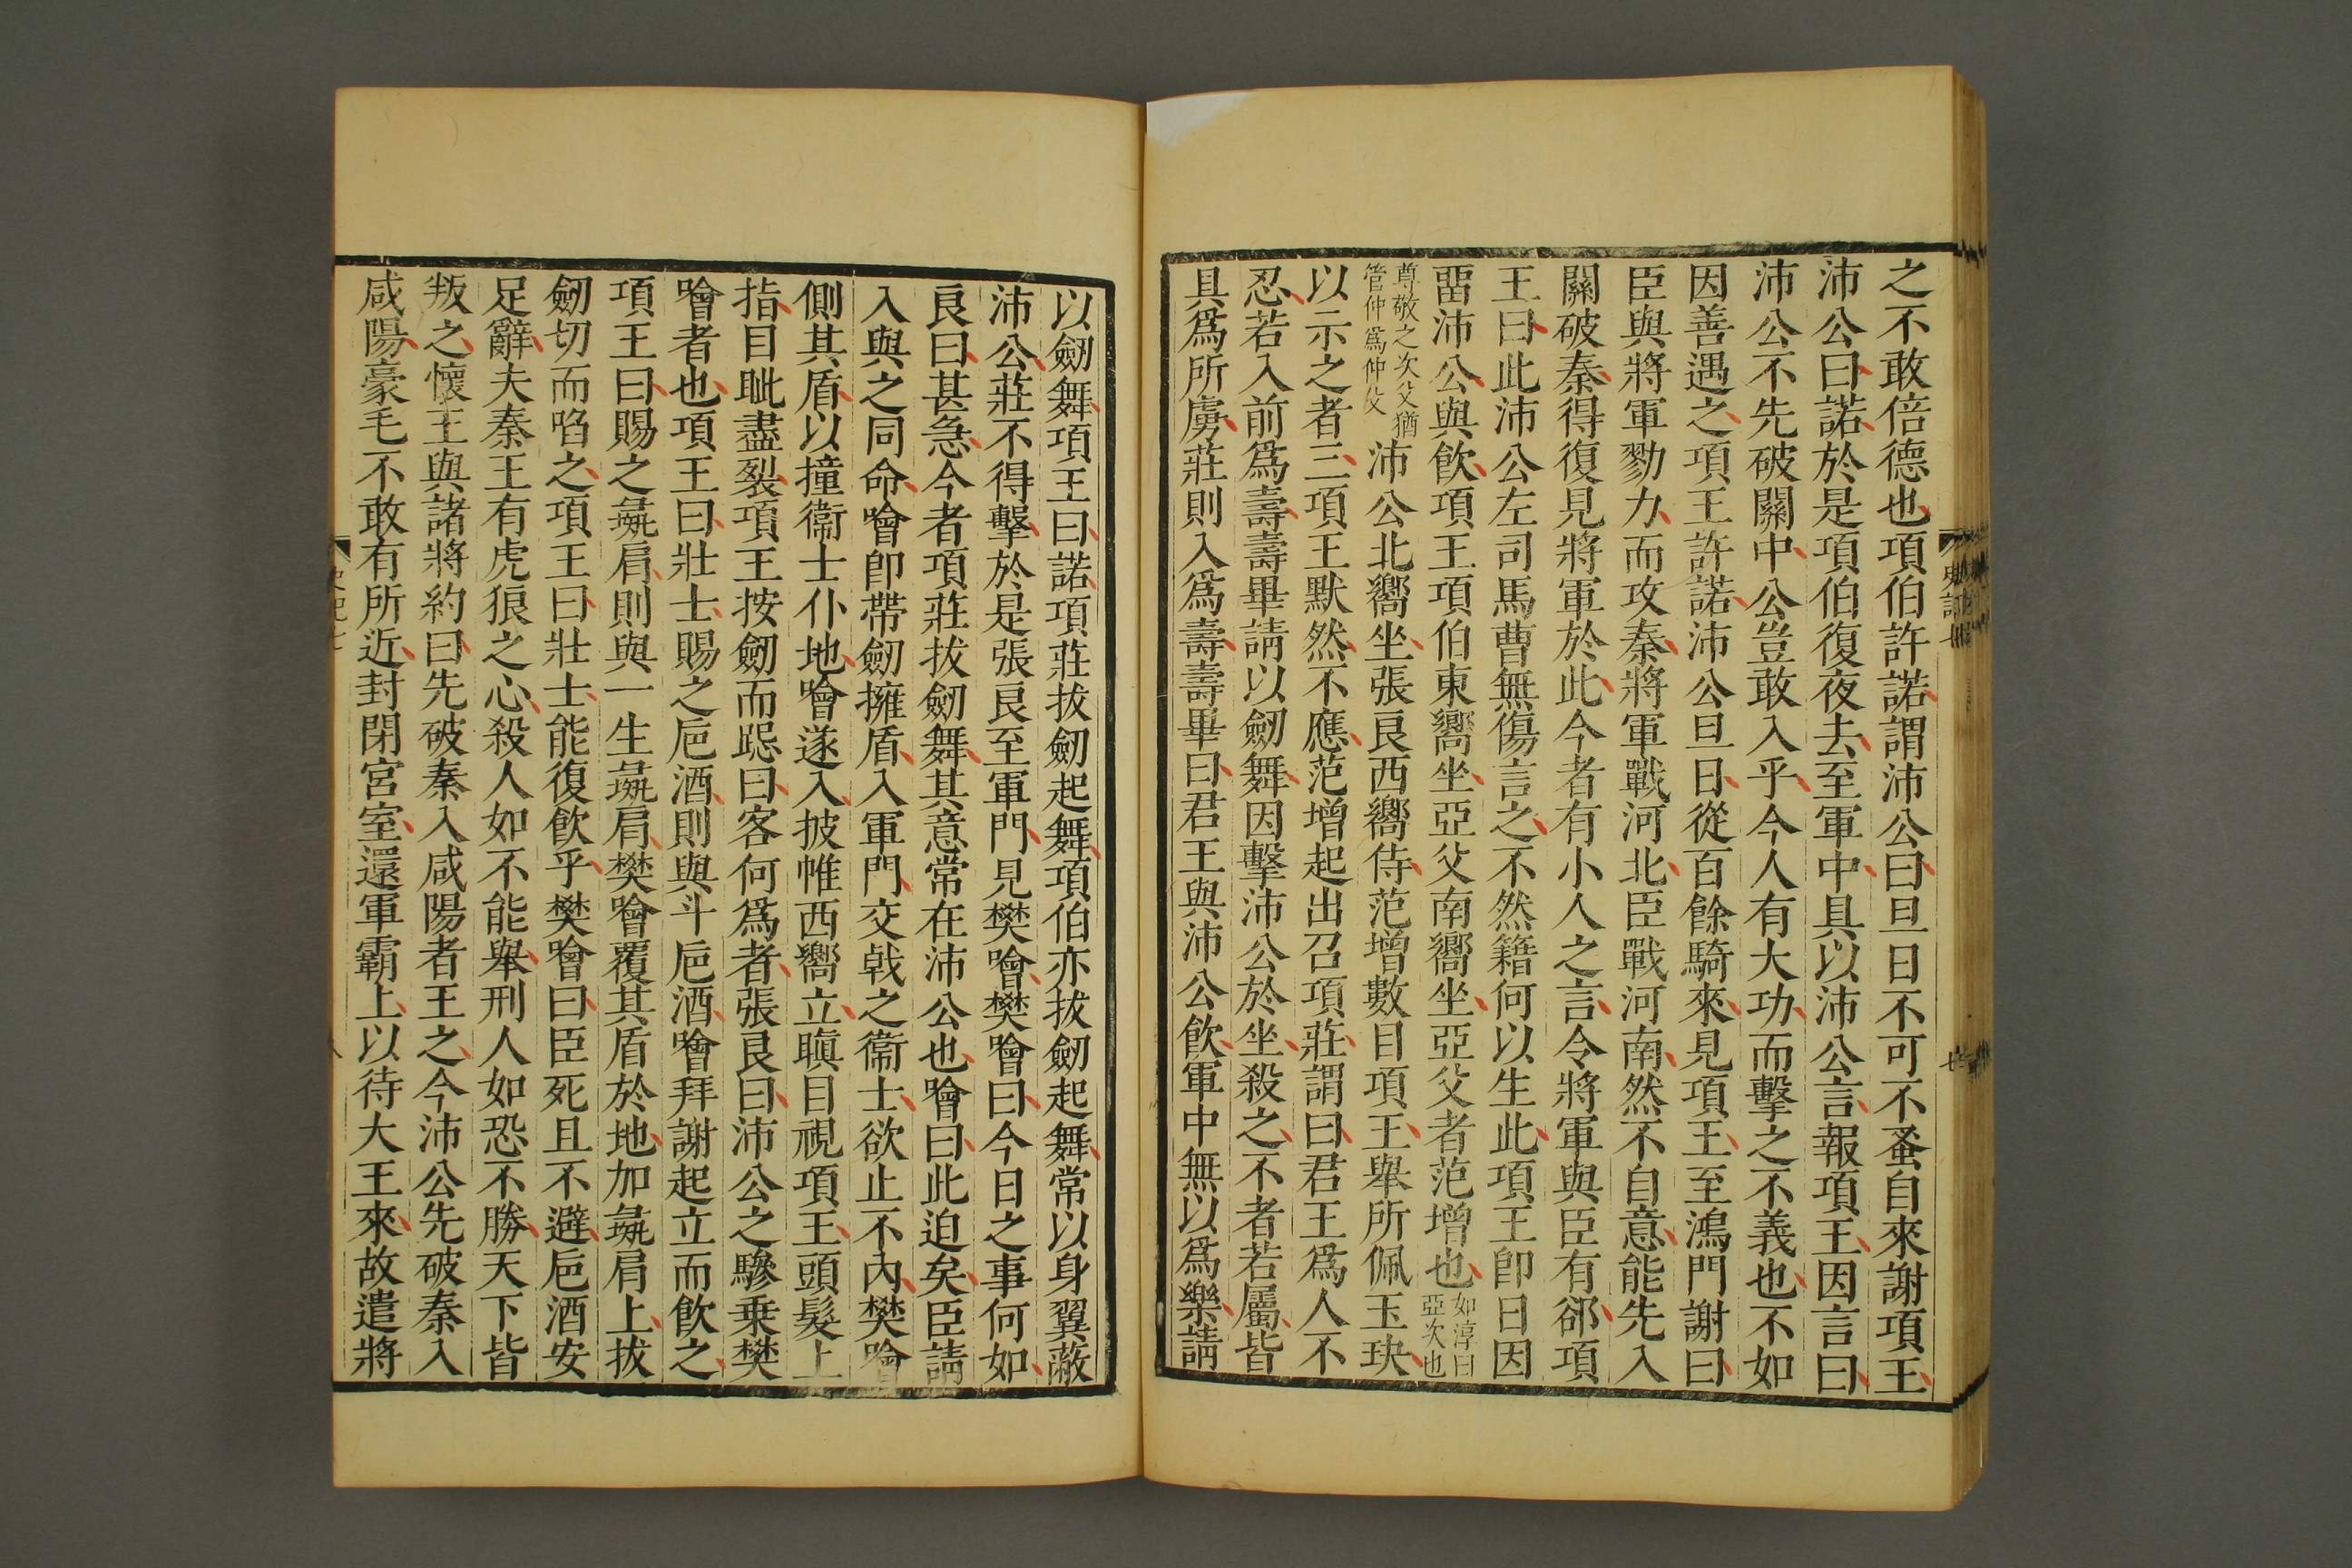 之不敢倍德也項伯許諾謂沛公曰旦日不可不蚤自來謝項王
沛公曰諾於是項伯復夜去至軍中具以沛公言報項王因言曰
沛公不先破關中公豈敢入乎今人有大功而擊之不義也不如
因善遇之項王許諾沛公旦日從百餘騎來見項王至鴻門謝曰
臣與將軍勠力而攻秦將軍戰河北臣戰河南然不自意能先入
關破秦得復見將軍於此今者有小人之言令將軍與臣有郤項
王曰此沛公左司馬曹無傷言之不然籍何以生此項王卽日因
畱沛公與飲項王項伯東嚮坐亞父南嚮坐亞父者范增也如淳曰亞次也
尊敬之次父猶管仲爲仲父沛公北嚮坐張良西嚮侍范增數目項王舉所佩玉玦
以示之者三項王默然不應范增起出召項莊謂曰君王爲人不
忍若入前爲壽壽畢請以劒舞因擊沛公於坐殺之不者若屬皆
具爲所虜莊則入爲壽壽畢曰君王與沛公飲軍中無以爲樂請
以劒舞項王曰諾項莊拔劒起舞項伯亦拔劒起舞常以身翼蔽
沛公莊不得擊於是張良至軍門見樊噲樊噲曰今日之事何如
良曰甚急今者項莊拔劒舞其意常在沛公也噲曰此迫矣臣請
入與之同命噲卽帶劒擁盾入軍門交戟之衞士欲止不內樊噲
側其盾以撞衞士仆地噲遂入披帷西嚮立瞋目視項王頭髮上
指目眦盡裂項王按劒而跽曰客何爲者張良曰沛公之驂乗樊
噲者也項王曰壯士賜之巵酒則與斗巵酒噲拜謝起立而飲之
項王曰賜之彘肩則與一生彘肩樊噲覆其盾於地加彘肩上拔
劒切而啗之項王曰壯士能復飲乎樊噲曰臣死且不避巵酒安
足辭夫秦王有虎狼之心殺人如不能舉刑人如恐不勝天下皆
叛之懷王與諸將約曰先破秦入咸陽者王之今沛公先破秦入
咸陽豪毛不敢有所近封閉宮室還軍霸上以待大王來故遣將
史記七
史記七